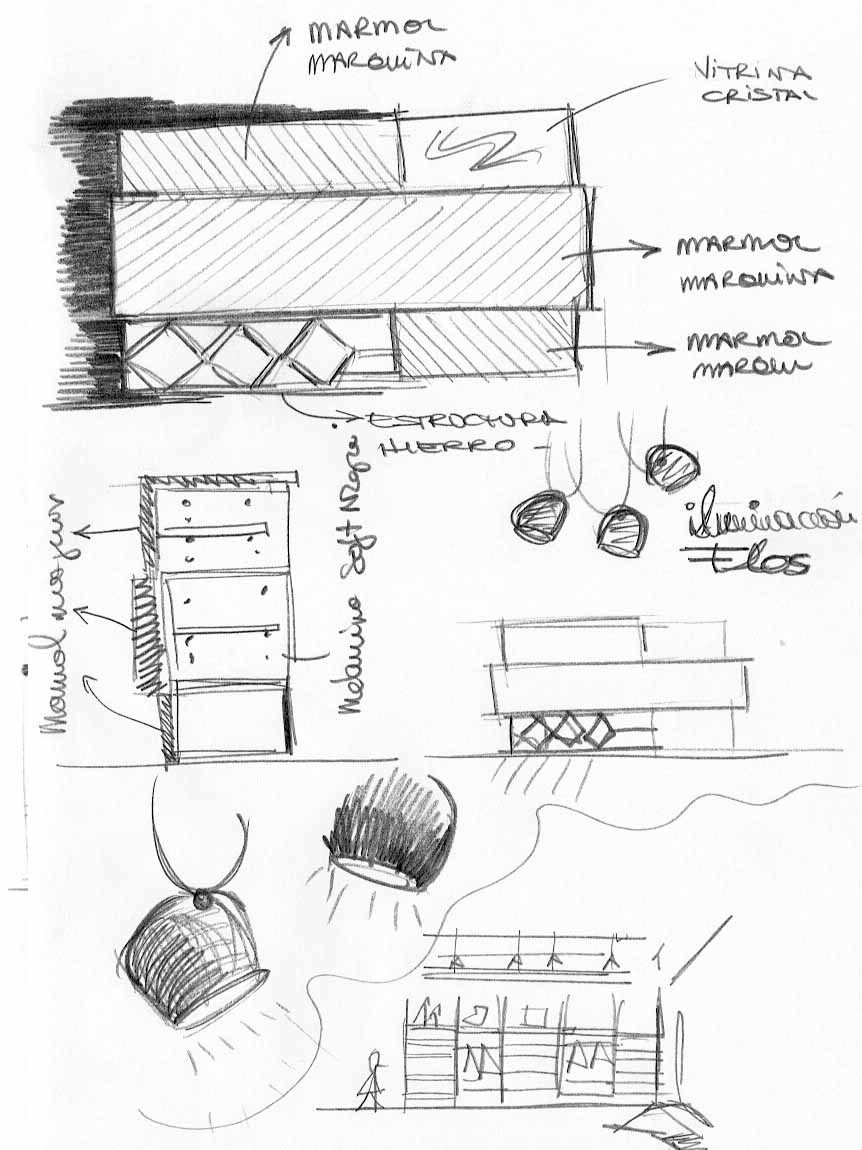 MARMOL
MARQUINA
VITRINA
CRISTAL
MARMOL
MARQUINA
MARMOL
MARQUI
ESTRUCTURA
HIERRO
iluminación
Flos
Melamina Soft Negra
Marmol